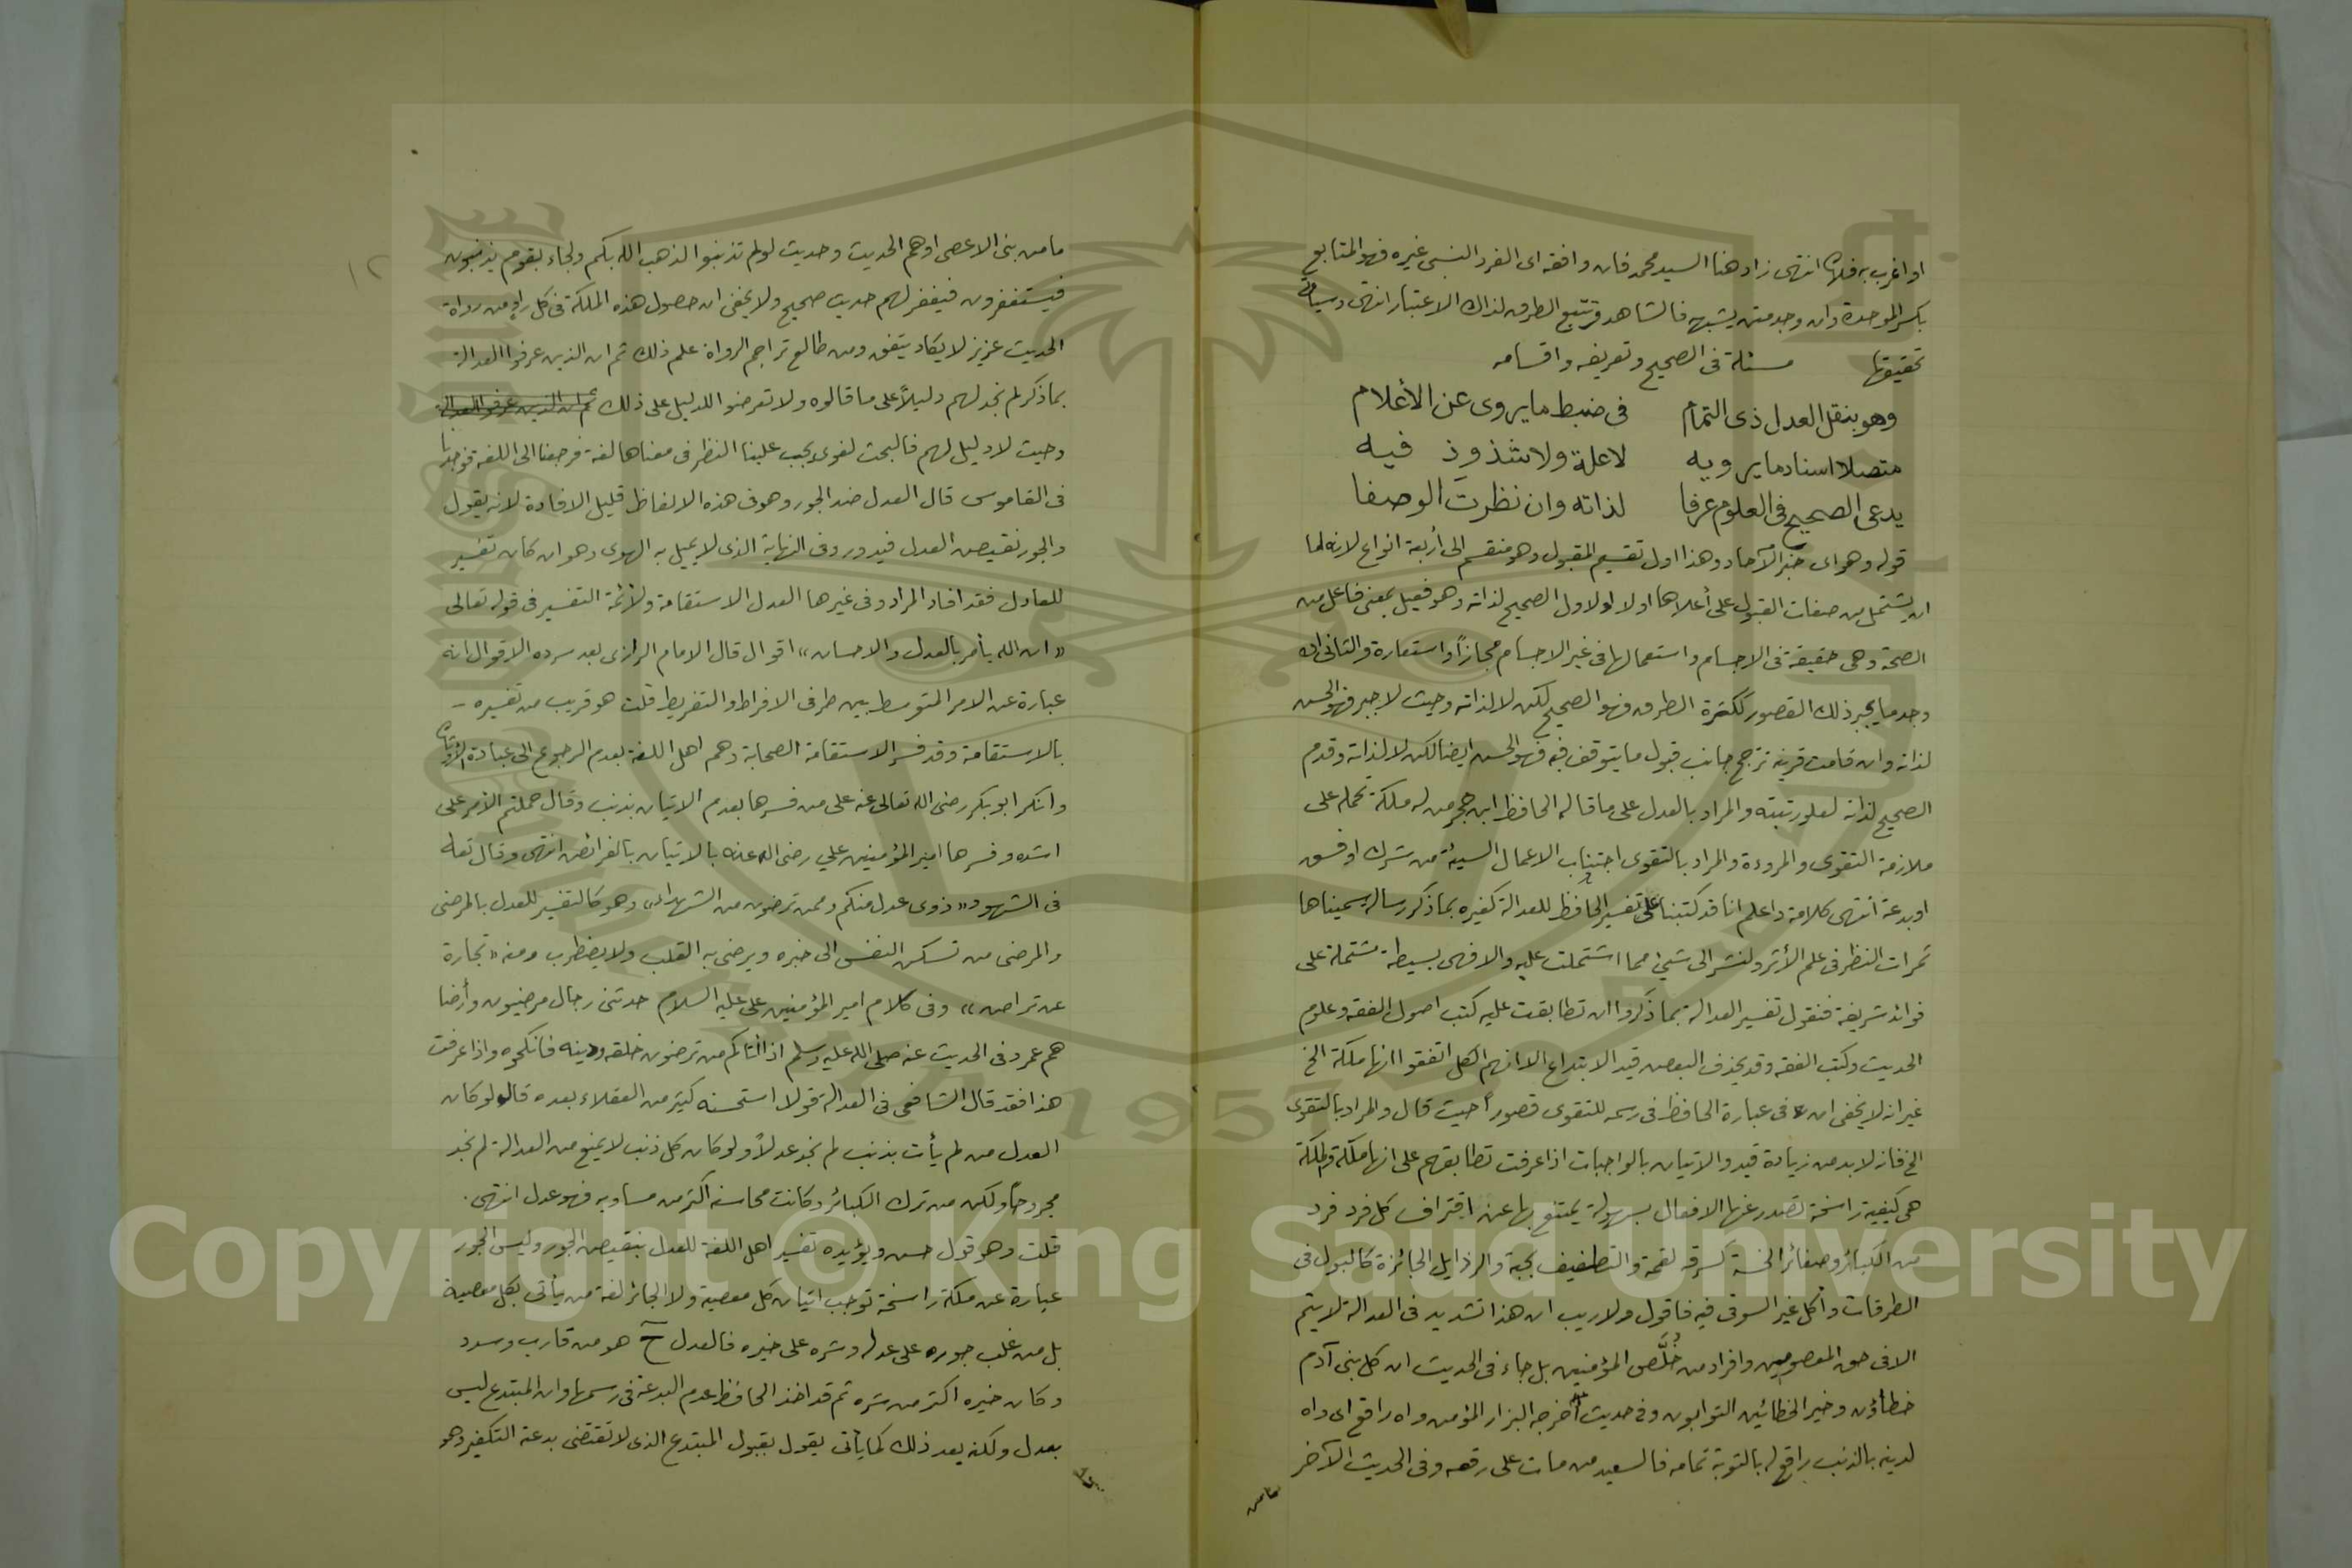 او اغرب به فلان انتهى زاد هنا السيد محمد فان وافقه اى الفرد النسبى غيره فهو المتابع
بكسر الموحدة وان وجد متن يشبهه فالشاهد وتتبع الطرق لذلك الاعتبار انتهى وسيأتى
تحقيقها مسئلة فى الصحيح وتعريفه واقسامه
وهو بنقل العدل ذى التمام فى ضبط ما يروى عن الأعلام
متصلا اسناد ما يرويه لا علة ولا شذوذ فيه
يدعى الصحيح فى العلوم عرفا لذاته وان نظرت الوصفا
قوله وهو اى خبر الآحاد وهذا اول تقسيم المقبول وهو منقسم الى أربعة انواع لانه اما
ان يشتمل من صفات القبول على أعلاها اولا الاول الصحيح لذاته وهو فعيل بمعنى فاعل من
الصحة وهى حقيقة فى الاجسام واستعمالها فى غير الاجسام مجازاً او استعارة والثانى ان
وجد ما يجبر ذلك القصور ككثرة الطرق فهو الصحيح لكن لا لذاته وحيث لا جبر فهو الحسن
لذاته وان قامت قرينة ترجح جانب قبول ما يتوقف فيه فهو الحسن ايضا لكن لا لذاته وقدم
الصحيح لذاته لعلو رتبته والمراد بالعدل على ما قاله الحافظ ابن حجر من له ملكة تحمله على
ملازمة التقوى والمروءة والمراد بالتقوى اجتناب الاعمال السيئة من شرك او فسق
او بدعة انتهى كلامه واعلم انا قد كتبنا على تفسير الحافظ للعدالة كغيره بما ذكر رسالة سميناها
ثمرات النظر فى علم الأثر ولنشر الى شيئ مما اشتملت عليه والا فهى بسيطة مشتملة على
فوائد شريفة فنقول تفسير العدالة بما ذكروا ان تطابقت عليه كتب اصول الفقه وعلوم
الحديث وكتب الفقه وقد يحذف البعض قيد الابتداع الا انهم الكل اتفقوا انها ملكة الخ
غير انه لا يخفى ان فى عبارة الحافظ فى رسمه للتقوى قصوراً حيث قال والمراد بالتقوى
الخ فانه لابد من زيادة قيد والاتيان بالواجبات اذا عرفت تطابقهم على انها ملكة والملكة
هى كيفية راسخة تصدر عنها الافعال بسهولة يمتنع بها عن اقتراف كل فرد فرد
من الكبائر وصغائر الخسة كسرقة لقمة والتطفيف بحبة والرذايل الجائزة كالبول فى
الطرقات وأكل غير السوقى فيه فاقول ولا ريب ان هذا تشديد فى العدالة لا يتم
الا فى حق المعصومين وافراد من خُلَّص المؤمنين بل جاء فى الحديث ان كل بنى آدم
خطاؤن وخير الخطائين التوابون وفى حديث أخرجه البزار المؤمن واه راقع اى واه
لدينه بالذنب راقع له بالتوبة تمامه فالسعيد من مات على رقعه وفى الحديث الآخر
ما من
ما من بنى الا عصى او هم الحديث وحديث لو لم تذنبوا لذهب الله بكم ولجاء بقوم يذنبون
فيستغفرون فيغفر لهم حديث صحيح ولا يخفى ان حصول هذه الملكة فى كل راو من رواة
الحديث عزيز لا يكاد يتفق ومن طالع تراجم الرواة علم ذلك ثم ان الذين عرفوا العدالة
بما ذكر لم نجد لهم دليلاً على ما قالوه ولا تعرضوا للدليل على ذلك ثم ان الذين عرفوا العدالة
وحيث لا دليل لهم فالبحث لغوى يجب علينا النظر فى معناها لغة فرجعنا الى اللغة فوجدنا
فى القاموس قال العدل ضد الجور وهو فى هذه الالفاظ قليل الافادة لانه يقول
والجور نقيض العدل فيدور وفى النهاية الذى لا يميل به الهوى وهو ان كان تفسير
للعادل فقد افاد المراد وفى غيرها العدل الاستقامة ولأئمة التفسير فى قوله تعالى
«ان الله يأمر بالعدل والاحسان» اقوال قال الامام الرازى بعد سرده الاقوال انه
عبارة عن الامر المتوسط بين طرفى الافراط والتفريط قلت هو قريب من تفسيره
بالاستقامة وقد فسر الاستقامة الصحابة وهم اهل اللغة بعدم الرجوع الى عبادة الأوثان
وانكر ابو بكر رضى الله تعالى عنه على من فسرها بعدم الاتيان بذنب وقال حملتم الأمر على
اشده وفسرها امير المؤمنين علي رضى الله عنه بالاتيان بالفرائض انتهى وقال تعالى
فى الشهود «ذوى عدل منكم وممن ترضون من الشهداء» وهو كالتفسير للعدل بالمرضى
والمرضى من تسكن النفس الى خبره ويرضى به القلب ولا يضطرب ومنه «تجارة
عن تراض» وفى كلام امير المؤمنين على عليه السلام حدثنى رجال مرضيون وأرضا
هم عمر وفى الحديث عنه صلى الله عليه وسلم اذا اتاكم من ترضون خلقه ودينه فانكحوه واذا عرفت
هذا فقد قال الشافعى فى العدالة قولا استحسنه كثير من العقلاء بعده قال لو كان
العدل من لم يأت بذنب لم نجد عدلاً ولو كان كل ذنب لا يمنع من العدالة لم نجد
مجروحاً ولكن من ترك الكبائر وكانت محاسنه اكثر من مساويه فهو عدل انتهى.
قلت وهو قول حسن ويؤيده تفسير اهل اللغة للعدل بنقيض الجور وليس الجور
عبارة عن ملكة راسخة توجب اتيان كل معصية ولا الجائر لغة من يأتى بكل معصية
بل من غلب جوره على عدله وشره على خيره فالعدل ح هو من قارب وسدد
وكان خيره اكثر من شره ثم قد اخذ الحافظ عدم البدعة فى رسمها وان المبتدع ليس
بعدل ولكنه بعد ذلك كما يأتى يقول بقبول المبتدع الذى لا تقتضى بدعته التكفير وهو
١٢
Copyright © King Saud University
1957